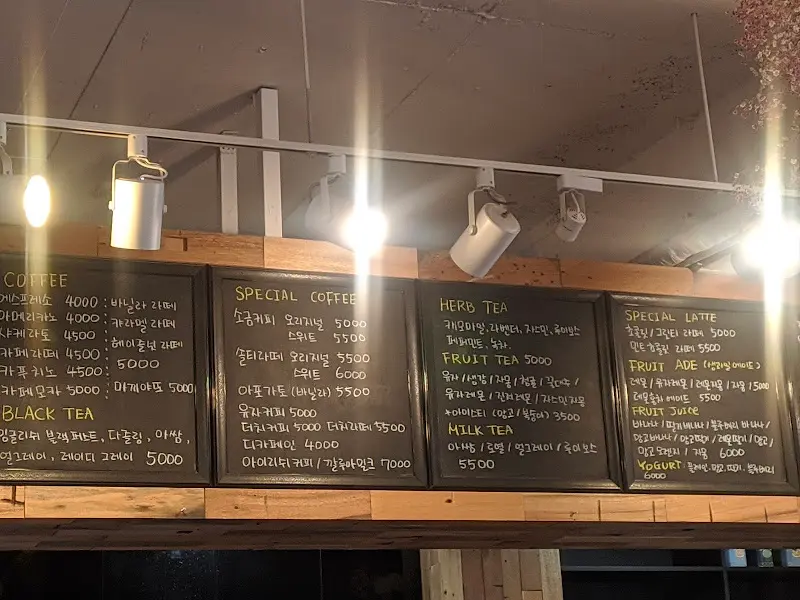 COFFEE
에스프레소 4000 : 바닐라 라떼
아메리카노 4000 : 캬라멜 라떼
샤케라토 4500 : 헤이즐넛 라떼
카페라떼 4500 : 5000
카푸치노 4500 :
카페모카 5000 : 마끼야또 5000
BLACK TEA
잉글리쉬 블랙퍼스트, 다즐링, 아쌈,
얼그레이, 레이디 그레이 5000
SPECIAL COFFEE
소금커피 오리지널 5000
스위트 5500
솔티라떼 오리지널 5500
스위트 6000
아포가토 (바닐라) 5500
유자커피 5000
더치커피 5000 더치라떼 5500
디카페인 4000
아이리쉬커피 / 깔루아밀크 7000
HERB TEA
캐모마일, 라벤더, 자스민, 루이보스
페퍼민트, 녹차.
FRUIT TEA 5000
유자 / 생강 / 자몽 / 청귤 /
유자레몬 / 진저레몬 / 자스민자몽
+아이스티 (망고 / 복숭아) 3500
MILK TEA
아쌈 / 로열 / 얼그레이 / 루이보스
5500
SPECIAL LATTE
초콜릿 / 그린티 라떼 5000
민트 초콜릿 라떼 5500
FRUIT ADE
레몬 / 유자레몬 / 레몬자몽 / 자몽 / 5000
에이드 5500
FRUIT JUICE
바나나 / 딸기바나나 / 블루베리 바나나 /
망고바나나 / 망고딸기 / 레몬딸기 / 망고 /
망고 오렌지 / 자몽 6000
YOGURT : 플레인, 망고, 딸기, 블루베리
6000